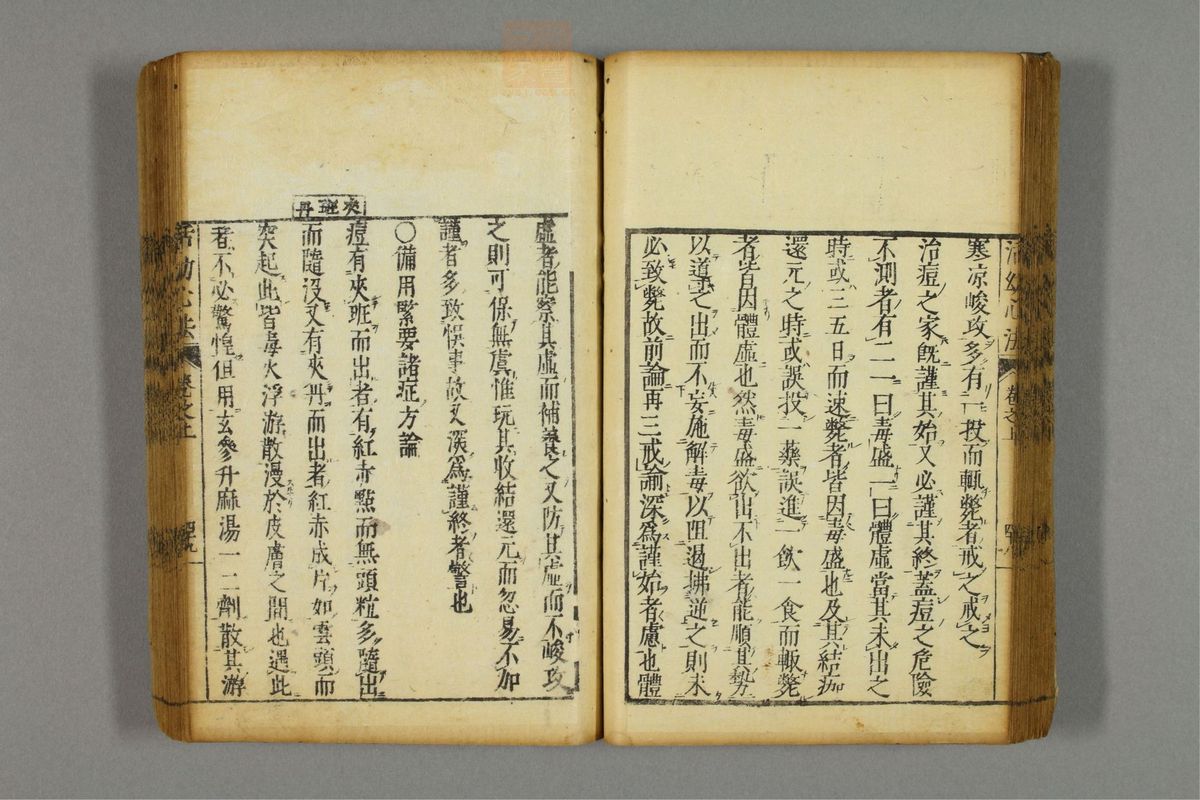 治幼心法 卷之上
寒凉峻攻多有一投而輙斃者戒之戒之
治痘之家既謹其始又必謹其終蓋痘之危險
不測者有二一曰毒盛一曰體虛當其未出之
時或三五日而速斃者皆因毒盛也及其結痂
還元之時或誤投一藥誤進一飲一食而輙斃
者皆因體虛也然毒盛欲出不出者能順其勢
以導之出而不妄施解毒以阻遏拂逆之則未
必致斃故前論再三戒諭深爲謹始者慮也體
虛者能察其虛而補養之又防其虛而不峻攻
之則可保無虞惟玩其收結還元而忽易不加
謹者多致悞事故又深爲謹終者警也
○備用緊要諸症方論
夾斑丹
痘有夾班而出者有紅赤點而無頭粒多隨出
而隨沒又有夾丹而出者紅赤成片如雲頭而
突起此皆毒火浮游散漫於皮膚之間也遇此
者不必驚惶但用玄參升麻湯一二劑散其游
心法 卷之上